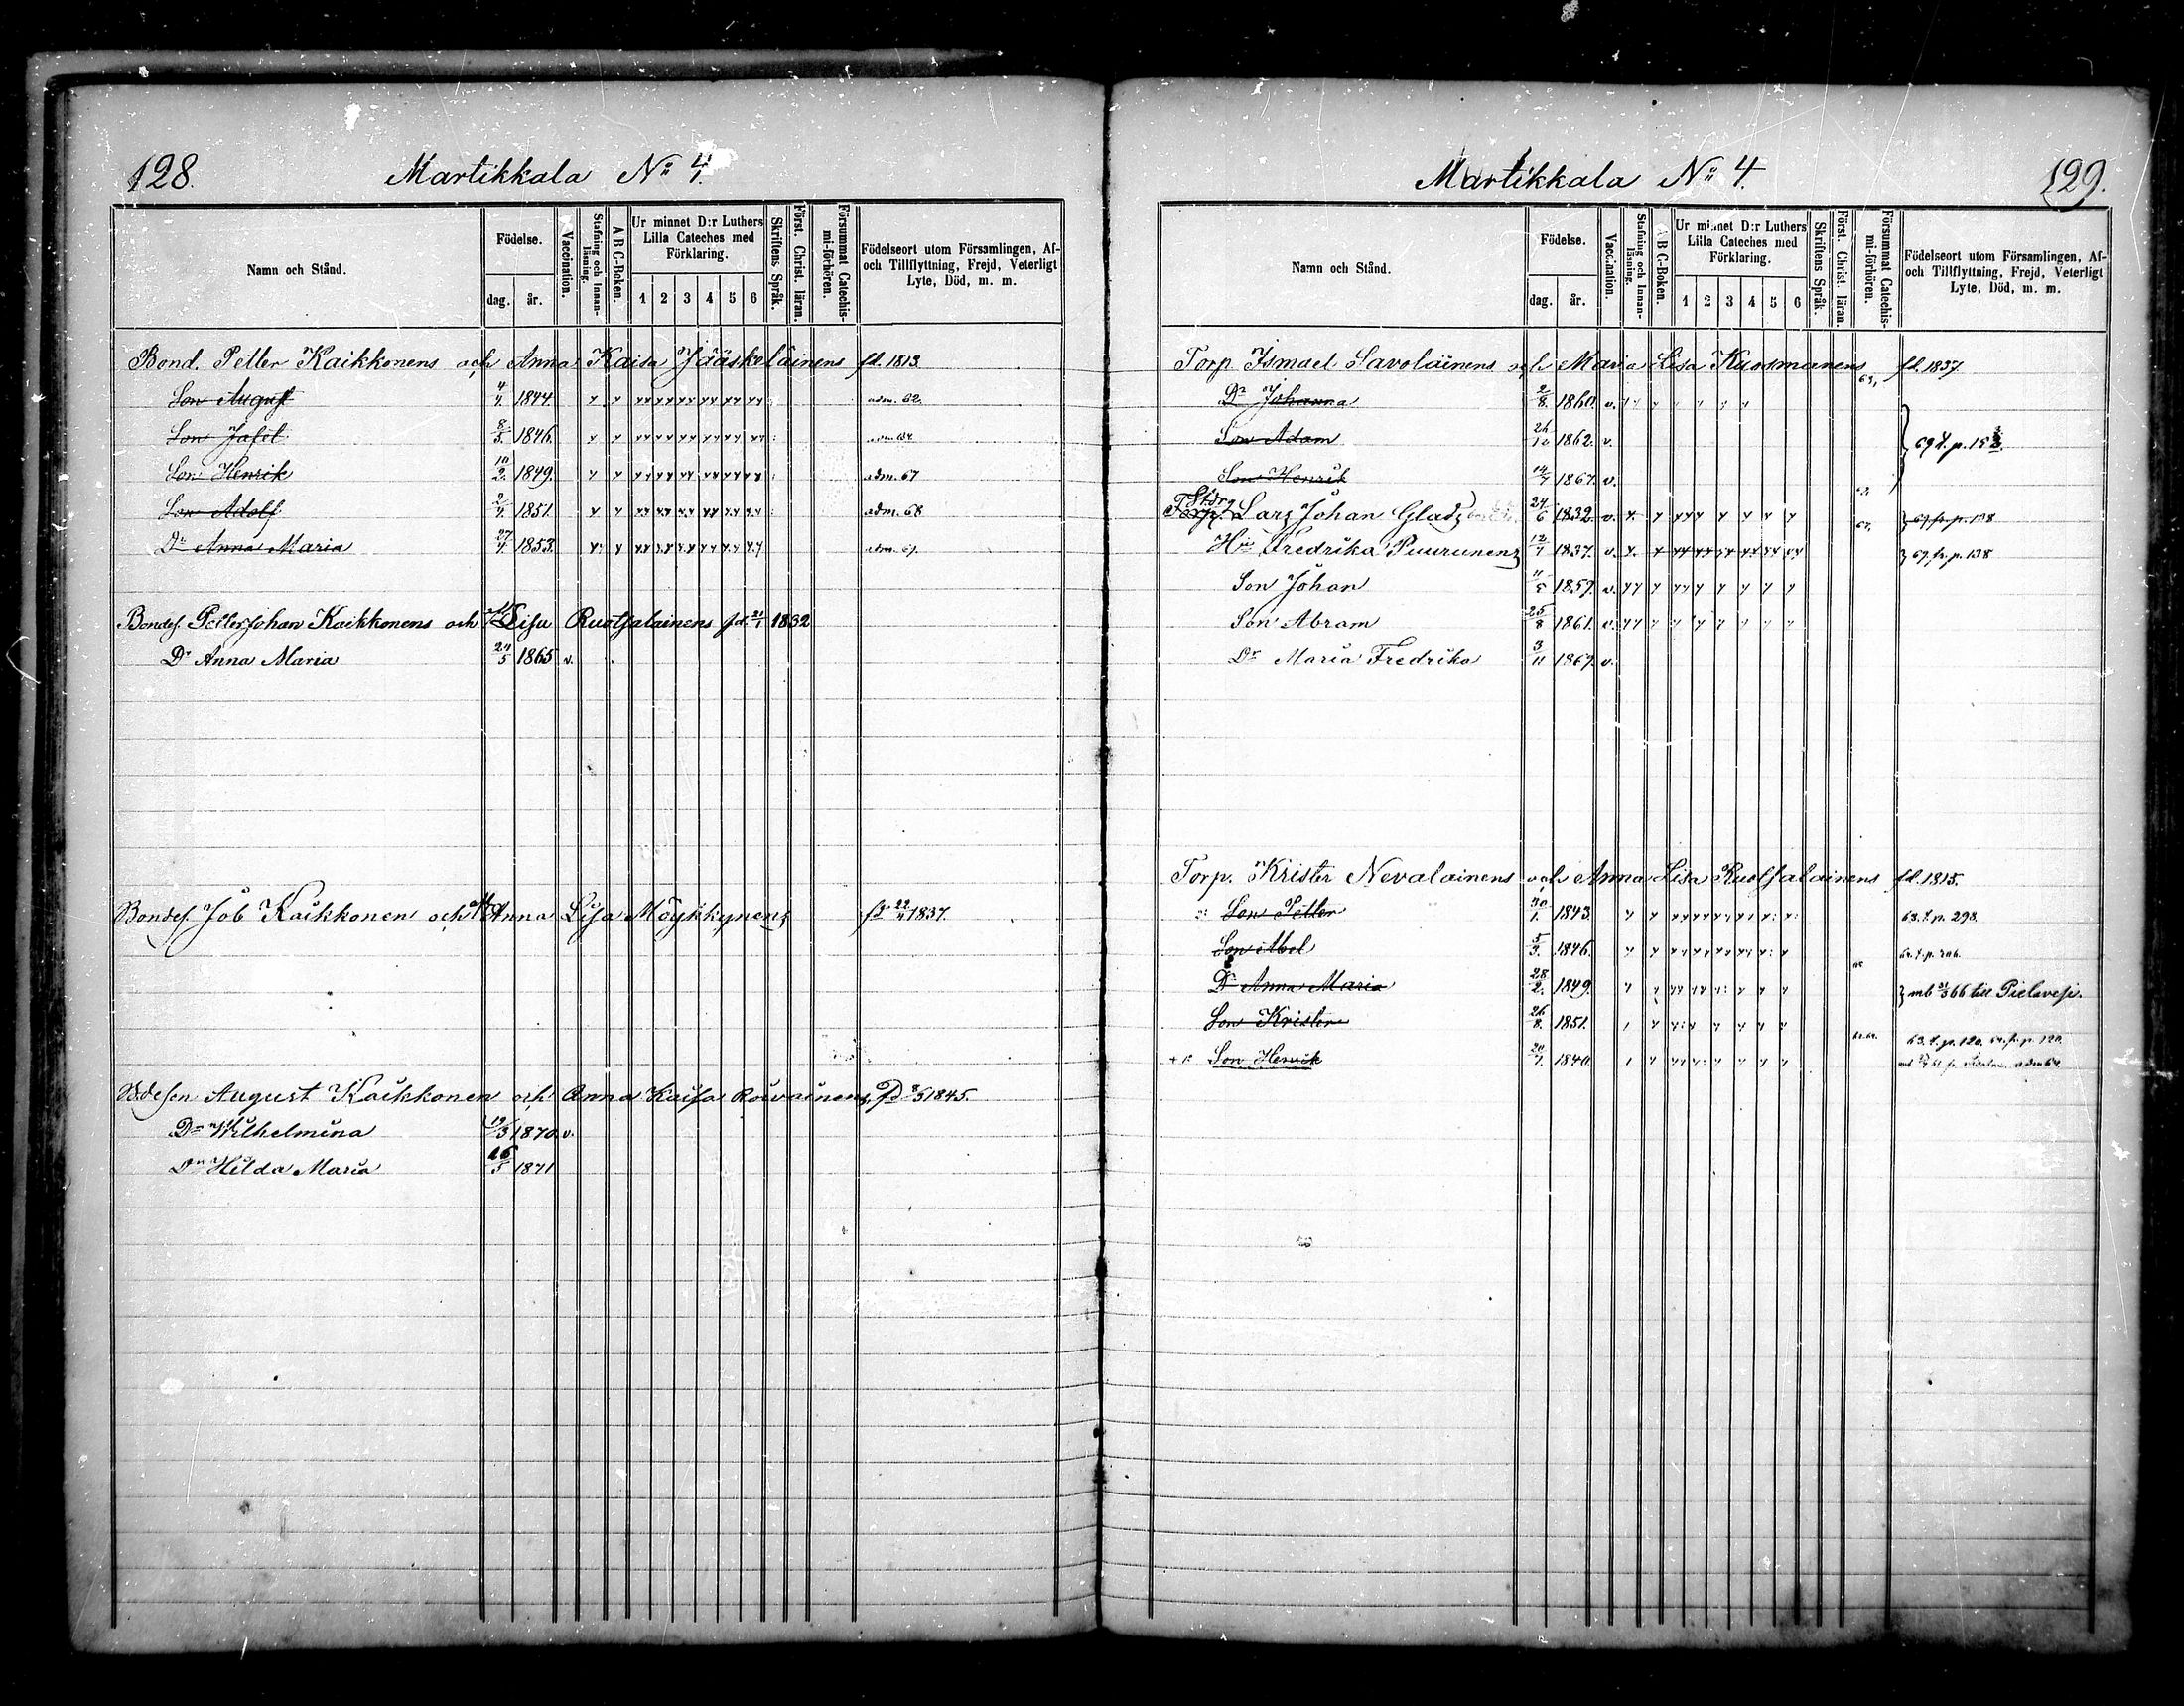 128.
Martikkala No 4.
Namn och Stånd.
Födelse.
dag.
år.
Vaccination.
Stafning och Innan-läsning.
A B C-Boken.
Ur minnet D:r Luthers Lilla Cateches med Förklaring.
1 2 3 4 5 6
Skriftens Språk.
Först. Christ. läran.
Försummat Catechis-mi-förhören.
Födelseort utom Församlingen, Af- och Tillflyttning, Frejd, Veterligt Lyte, Död, m. m.
Bond. Petter Kaikkonens och Anna Kaisa Jääskeläinens fd. 1813.
Son August 4/4 1844. adm. 62.
Son Jafet 8/5 1846. adm. 64
Son Henrik 10/2 1849. adm. 67
Son Adolf 2/4 1851. adm. 68
Dr Anna Maria 27/4 1853. adm. 69.
Bondes. Petter Johan Kaikkonens och Lisa Ruotsalainens fd. 21/1 1832
Dr Anna Maria 24/5 1865 v.
Bondes. Job Kaikkonen och Anna Lisa Möykkynens fd 22/11 1837.
Bdeson August Kaikkonen och Anna Kaisa Roivainens, fd 8/5 1845.
Dr Wilhelmina 19/3 1870 v.
Dr Hilda Maria 16/5 1871
Martikkala No 4.
129.
Namn och Stånd.
Födelse.
dag.
år.
Vaccination.
Stafning och Innan-läsning.
A B C-Boken.
Ur minnet D:r Luthers Lilla Cateches med Förklaring.
1 2 3 4 5 6
Skriftens Språk.
Först. Christ. läran.
Försummat Catechis-mi-förhören.
Födelseort utom Församlingen, Af- och Tillflyttning, Frejd, Veterligt Lyte, Död, m. m.
Torp. Ismael Savolainens och Maria Lisa Kuosmanens fd. 1837
Dr Johanna 2/8 1860. v.
Son Adam 1862. v. 69 t. p.
Son Henrik 14/7 1867. v.
Torp. Lars Johan Glads 24/6 1832 v. 67 fr. p. 138
Hu Fredrika Puurunens 12/7 1837. v. 67. fr. p. 138
Son Johan 11/5 1857. v.
Son Abram 25/8 1861. v.
Dr Maria Fredrika 3/11 1867. v.
Torp. Krister Nevalainens och Anna Lisa Ruotsalainens fd. 1815.
Son Petter 30/1. 1843. 63. t. p. 293.
Son Abel 5/4. 1846.
Dr Anna Maria 28/2. 1849. mb 66 till Pielavesi.
Son Krister 26/8. 1851. 63. t. p. 120. 64. fr. p. 120.
Son Henrik 20/7. 1840. adm 64.